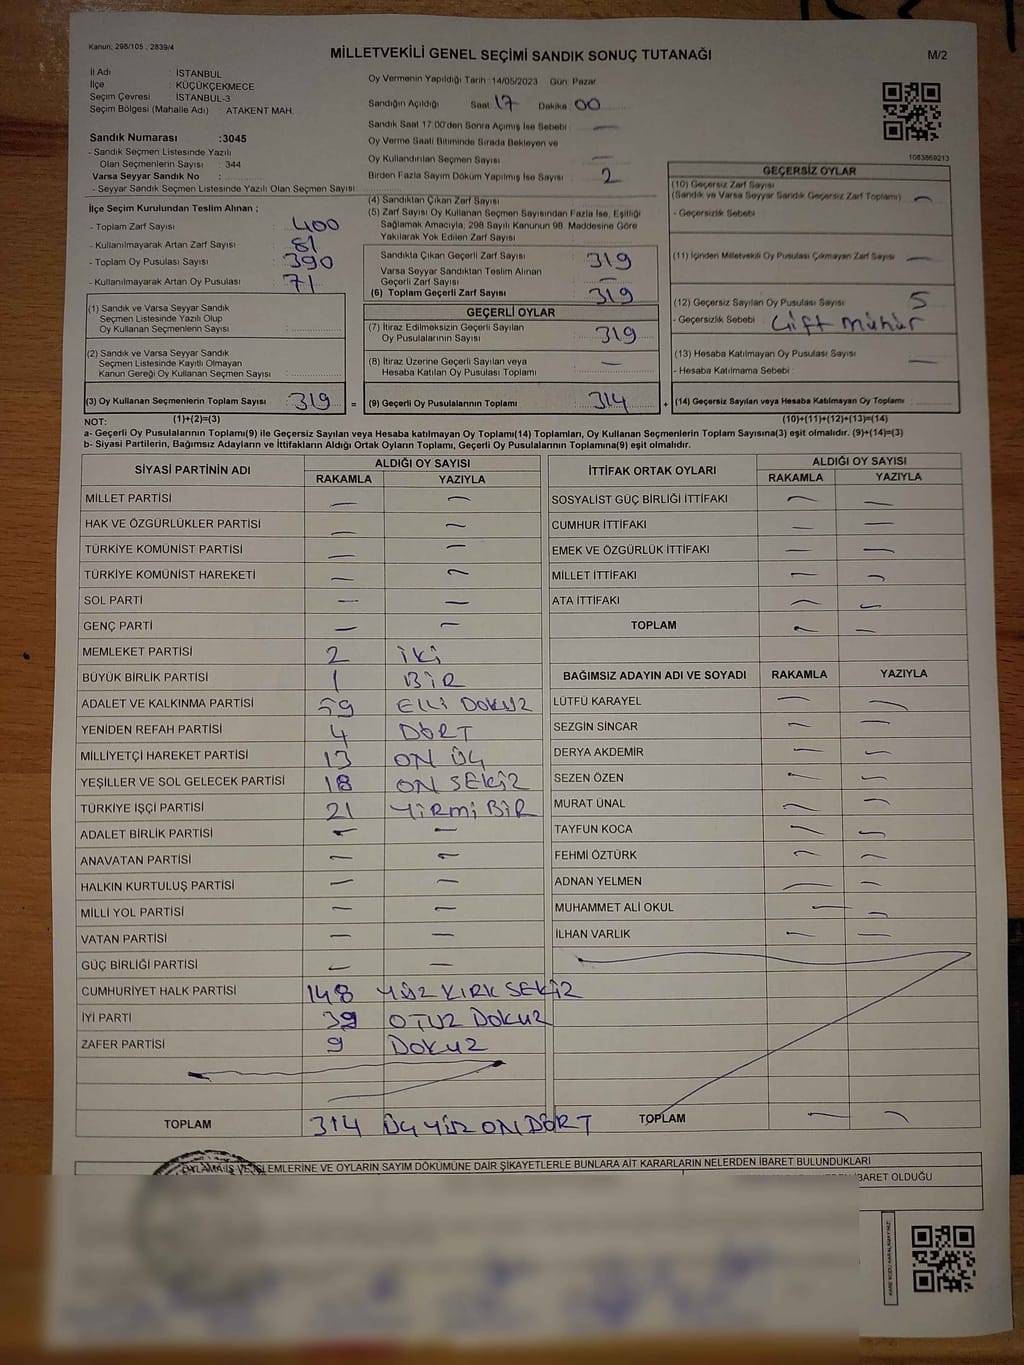 Kanun; 298/105 , 2839/4
MİLLETVEKİLİ GENEL SEÇİMİ SANDIK SONUÇ TUTANAĞI
M/2
İl Adı : İSTANBUL
İlçe : KÜÇÜKÇEKMECE
Seçim Çevresi : İSTANBUL-3
Seçim Bölgesi (Mahalle Adı) : ATAKENT MAH.
Sandık Numarası :3045
- Sandık Seçmen Listesinde Yazılı
Olan Seçmenlerin Sayısı : 344
Varsa Seyyar Sandık No :
- Seyyar Sandık Seçmen Listesinde Yazılı Olan Seçmen Sayısı:
İlçe Seçim Kurulundan Teslim Alınan ;
- Toplam Zarf Sayısı : 400
- Kullanılmayarak Artan Zarf Sayısı : 81
- Toplam Oy Pusulası Sayısı : 390
- Kullanılmayarak Artan Oy Pusulası : 71
(1) Sandık ve Varsa Seyyar Sandık
Seçmen Listesinde Yazılı Olup
Oy Kullanan Seçmenlerin Sayısı :
(2) Sandık ve Varsa Seyyar Sandık
Seçmen Listesinde Kayıtlı Olmayan
Kanun Gereği Oy Kullanan Seçmen Sayısı :
(3) Oy Kullanan Seçmenlerin Toplam Sayısı : 319 =
(1)+(2)=(3)
Oy Vermenin Yapıldığı Tarih : 14/05/2023 Gün: Pazar
Sandığın Açıldığı Saat: 17 Dakika 00
Sandık Saat 17:00'den Sonra Açımış İse Sebebi : —
Oy Verme Saati Bitiminde Sırada Bekleyen ve
Oy Kullandırılan Seçmen Sayısı : —
Birden Fazla Sayım Döküm Yapılmış İse Sayısı : 2
(4) Sandıktan Çıkan Zarf Sayısı :
(5) Zarf Sayısı Oy Kullanan Seçmen Sayısından Fazla İse, Eşitliği
Sağlamak Amacıyla, 298 Sayılı Kanunun 98. Maddesine Göre
Yakılarak Yok Edilen Zarf Sayısı :
Sandıkta Çıkan Geçerli Zarf Sayısı : 319
Varsa Seyyar Sandıktan Teslim Alınan
Geçerli Zarf Sayısı : —
(6) Toplam Geçerli Zarf Sayısı : 319
GEÇERLİ OYLAR
(7) İtiraz Edilmeksizin Geçerli Sayılan
Oy Pusulalarının Sayısı : 319
(8) İtiraz Üzerine Geçerli Sayılan veya
Hesaba Katılan Oy Pusulası Toplamı : —
(9) Geçerli Oy Pusulalarının Toplamı : 314 +
1083859213
GEÇERSİZ OYLAR
(10) Geçersiz Zarf Sayısı
(Sandık ve Varsa Seyyar Sandık Geçersiz Zarf Toplamı) : —
- Geçersizlik Sebebi :
(11) İçinden Milletvekili Oy Pusulası Çıkmayan Zarf Sayısı : —
(12) Geçersiz Sayılan Oy Pusulası Sayısı : 5
- Geçersizlik Sebebi : Çift mühür
(13) Hesaba Katılmayan Oy Pusulası Sayısı : —
- Hesaba Katılmama Sebebi :
(14) Geçersiz Sayılan veya Hesaba Katılmayan Oy Toplamı :
(10)+(11)+(12)+(13)=(14)
NOT:
a- Geçerli Oy Pusulalarının Toplamı(9) ile Geçersiz Sayılan veya Hesaba katılmayan Oy Toplamı(14) Toplamları, Oy Kullanan Seçmenlerin Toplam Sayısına(3) eşit olmalıdır. (9)+(14)=(3)
b- Siyasi Partilerin, Bağımsız Adayların ve İttifakların Aldığı Ortak Oyların Toplamı, Geçerli Oy Pusulalarının Toplamına(9) eşit olmalıdır.
SİYASİ PARTİNİN ADI ALDIĞI OY SAYISI
RAKAMLA YAZIYLA
MİLLET PARTİSİ — —
HAK VE ÖZGÜRLÜKLER PARTİSİ — —
TÜRKİYE KOMÜNİST PARTİSİ — —
TÜRKİYE KOMÜNİST HAREKETİ — —
SOL PARTİ — —
GENÇ PARTİ — —
MEMLEKET PARTİSİ 2 İKİ
BÜYÜK BİRLİK PARTİSİ 1 BİR
ADALET VE KALKINMA PARTİSİ 59 ELLİ DOKUZ
YENİDEN REFAH PARTİSİ 4 DÖRT
MİLLİYETÇİ HAREKET PARTİSİ 13 ON ÜÇ
YEŞİLLER VE SOL GELECEK PARTİSİ 18 ON SEKİZ
TÜRKİYE İŞÇİ PARTİSİ 21 YİRMİ BİR
ADALET BİRLİK PARTİSİ — —
ANAVATAN PARTİSİ — —
HALKIN KURTULUŞ PARTİSİ — —
MİLLİ YOL PARTİSİ — —
VATAN PARTİSİ — —
GÜÇ BİRLİĞİ PARTİSİ — —
CUMHURİYET HALK PARTİSİ 148 YÜZ KIRK SEKİZ
İYİ PARTİ 39 OTUZ DOKUZ
ZAFER PARTİSİ 9 DOKUZ
TOPLAM 314 ÜÇ YÜZ ON DÖRT
İTTİFAK ORTAK OYLARI ALDIĞI OY SAYISI
RAKAMLA YAZIYLA
SOSYALİST GÜÇ BİRLİĞİ İTTİFAKI — —
CUMHUR İTTİFAKI — —
EMEK VE ÖZGÜRLÜK İTTİFAKI — —
MİLLET İTTİFAKI — —
ATA İTTİFAKI — —
TOPLAM — —
BAĞIMSIZ ADAYIN ADI VE SOYADI RAKAMLA YAZIYLA
LÜTFÜ KARAYEL — —
SEZGİN SİNCAR — —
DERYA AKDEMİR — —
SEZEN ÖZEN — —
MURAT ÜNAL — —
TAYFUN KOCA — —
FEHMİ ÖZTÜRK — —
ADNAN YELMEN — —
MUHAMMET ALİ OKUL — —
İLHAN VARLIK — —
TOPLAM — —
OYLAMA İŞ VE İŞLEMLERİNE VE OYLARIN SAYIM DÖKÜMÜNE DAİR ŞİKAYETLERLE BUNLARA AİT KARARLARIN NELERDEN İBARET BULUNDUKLARI
İBARET OLDUĞU